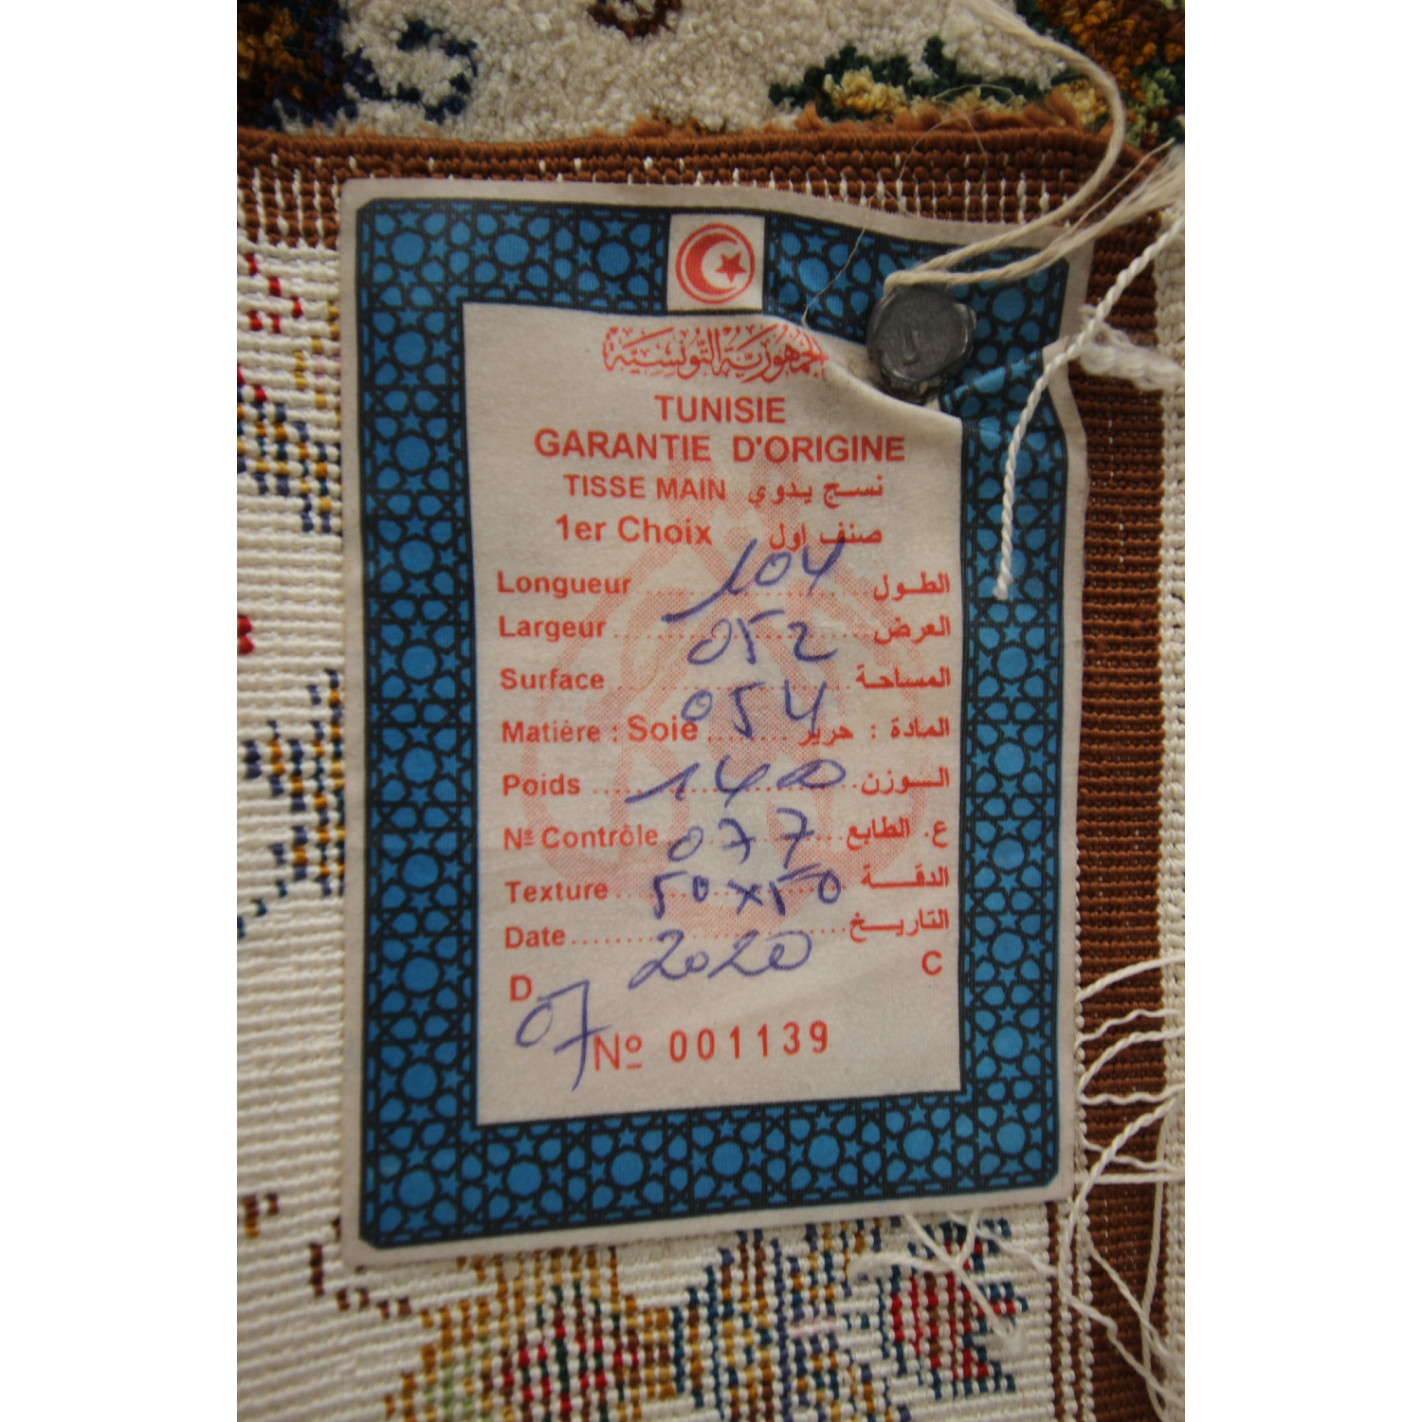 الجمهورية التونسية
TUNISIE
GARANTIE D'ORIGINE
TISSE MAIN نسج يدوي
1er Choix صنف اول
Longueur 104 الطول
Largeur 052 العرض
Surface 054 المساحة
Matière : Soie حرير : المادة
Poids 1400 الوزن
Nº Contrôle 077 ع. الطابع
Texture 50x50 الدقة
Date 2020 التاريخ
D 07 C
Nº 001139